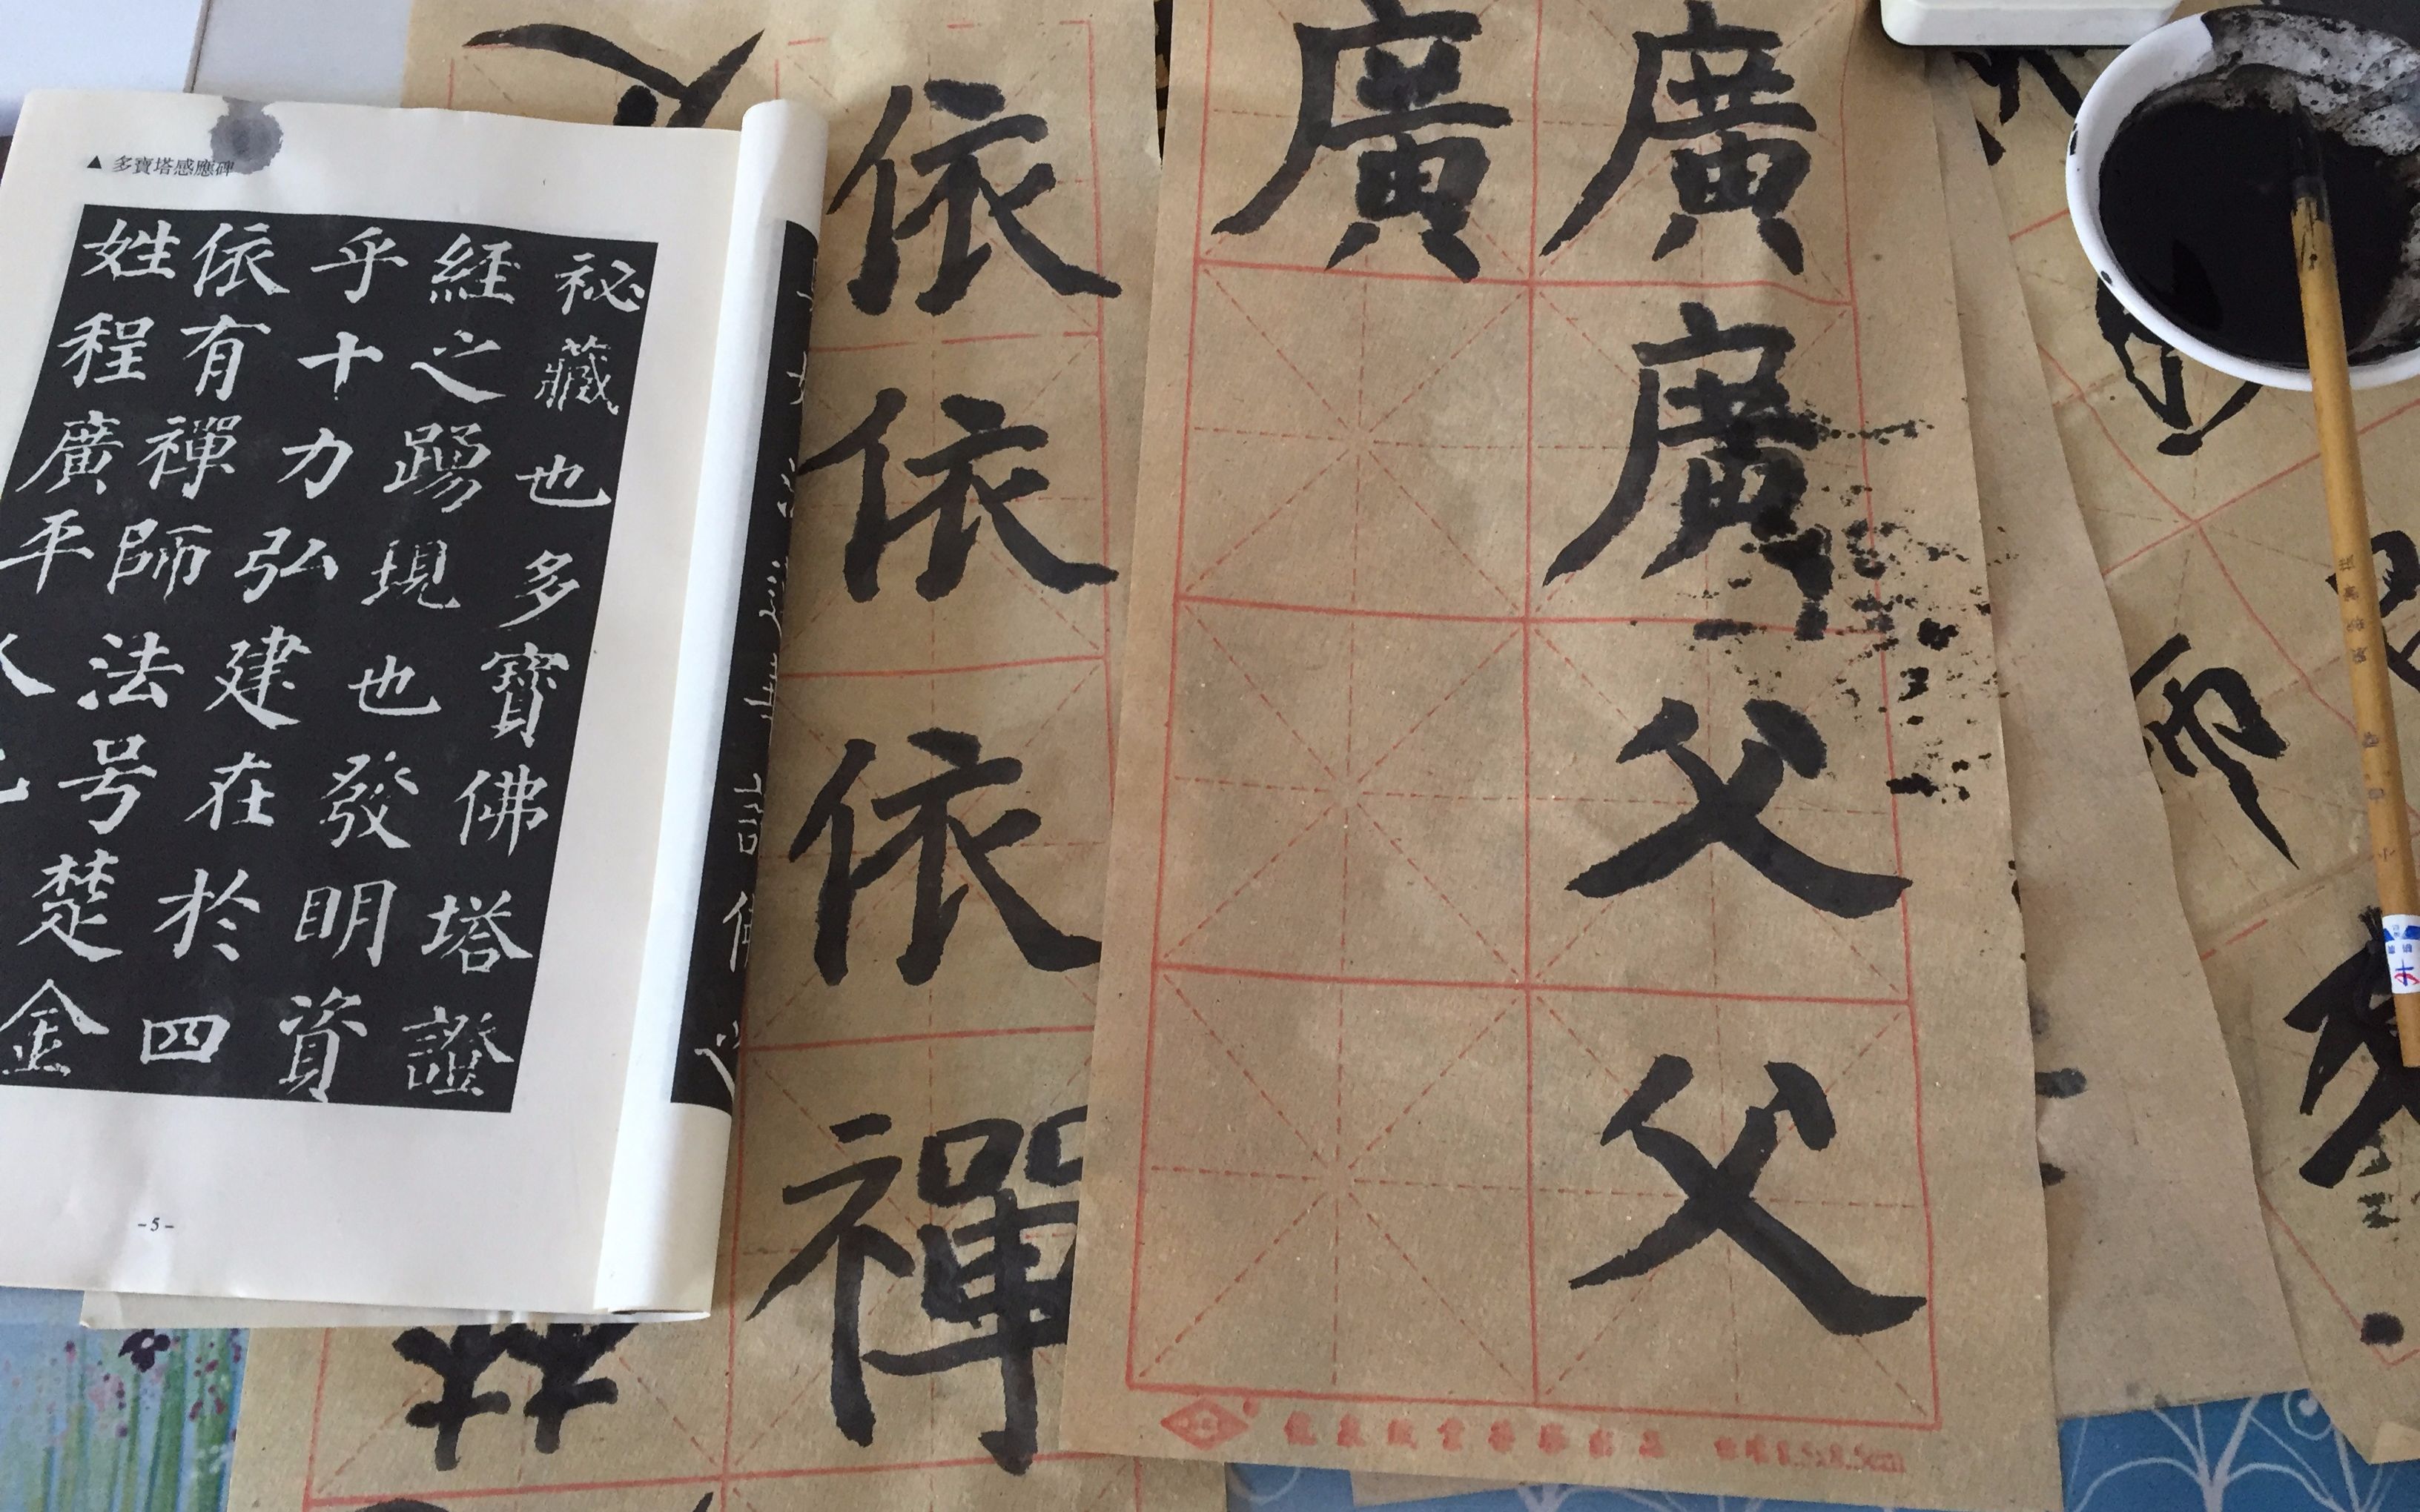 ▲ 多寶塔感應碑
祕藏也多寶佛塔證
經之踴現也發明資
乎十力弘建在於四
依有禪師法号楚金
姓程廣平
-5-
依
依
依
禪
廣
廣
父
父
廣
師
8.5x8.5cm